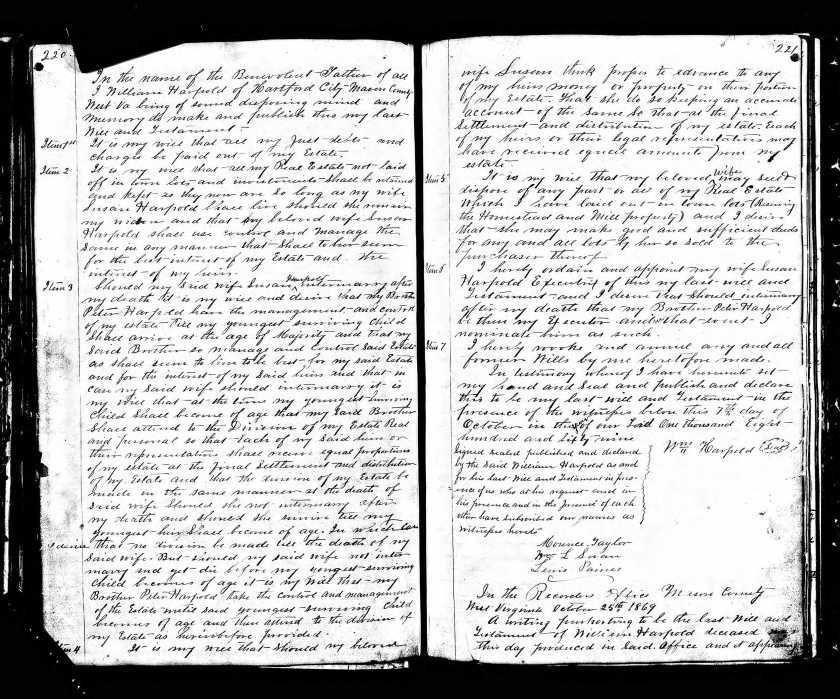 220
In the name of the Benevolent Father of all
I William Harpold of Hartford City Mason County
West Va being of sound disposing mind and
Memory do make and publish this my last
Will and Testament -
Item 1st It is my will that all my Just debts and
charges be paid out of my Estate.
Item 2 It is my will that all my Real Estate not laid
off in town lots and investments shall be retained
and kept as they now are so long as my wife
Susan Harpold shall live should she remain
my widow and that my beloved wife Susan
Harpold shall use control and manage the
same in any manner that shall to her seem
for the best interest of my Estate and the
interest of my heirs.
Item 3 Should my said wife Susan Harpold intermarry after
my death it is my will and desire that my Brother
Peter Harpold have the management and control
of my estate till my youngest surviving child
shall arrive at the age of Majority and that my
Said Brother so manage and control said Estate
as shall seem to him to be best for my said Estate
and for the interest of my said heirs and that in
case my said wife should intermarry it is
my will that at the time my youngest surviving
child shall become of age that my said Brother
shall attend to the Division of my Estate Real
and personal so that Each of my said heirs or
their representatives shall receive equal proportions
of my estate at the final Settlement and distribution
of my Estate and that the division of my Estate be
made in the same manner at the death of
said wife should she not intermarry after
my death and should she survive till my
youngest heir shall become of age. In which case
I desire that no division be made till the death of my
said wife. But should my said wife not inter
marry and yet die before my youngest surviving
child becomes of age it is my will that my
Brother Peter Harpold take the control and management
of the Estate until said youngest surviving child
becomes of age and then attend to the division of
my Estate as hereinbefore provided.
Item 4 It is my will that should my beloved
221
wife Susan think proper to advance to any
of my heirs money or property on their portion
of my Estate. that she do so keeping an accurate
account of the same so that at the final
Settlement and distribution of my estate. Each
of my heirs or their legal representatives may
have received equal amounts from my
estate.
Item 5 It is my will that my beloved wife may sell &
dispose of any part or all of my Real Estate
Which I have laid out in town lots (
the Homestead and Mill property) and I desire
that she may make good and sufficient deeds
for any and all lots by her so sold to the
purchaser thereof
Item 6 I hereby ordain and appoint my wife Susan
Harpold Executrix of this my last will and
Testament and I desire that should intermarry
after my death that my Brother Peter Harpold
be then my Executor and in that event I
nominate him as such.
Item 7 I hereby revoke and annul any and all
former Wills by me heretofore made.
In testimony whereof I have hereunto set
my hand and Seal and publish and declare
this to be my last will and Testament in the
presence of the witnesses below this 7th day of
October in the of our Lord One thousand Eight
hundred and Sixty nine
Wm H Harpold Seal
Signed sealed published and declared
by the Said William Harpold as and
for his last Will and Testament in pres-
ence of us who at his request and in
his presence and in the presence of each
other have subscribed our names as
witnesses hereto
Mounce Taylor
Wm L Swan
Lewis Paines
In the Recorders Office Mason County
West Virginia October 25th 1869
A writing purporting to be the last Will and
Testament of William Harpold deceased was
this day produced in Said Office and it appearing